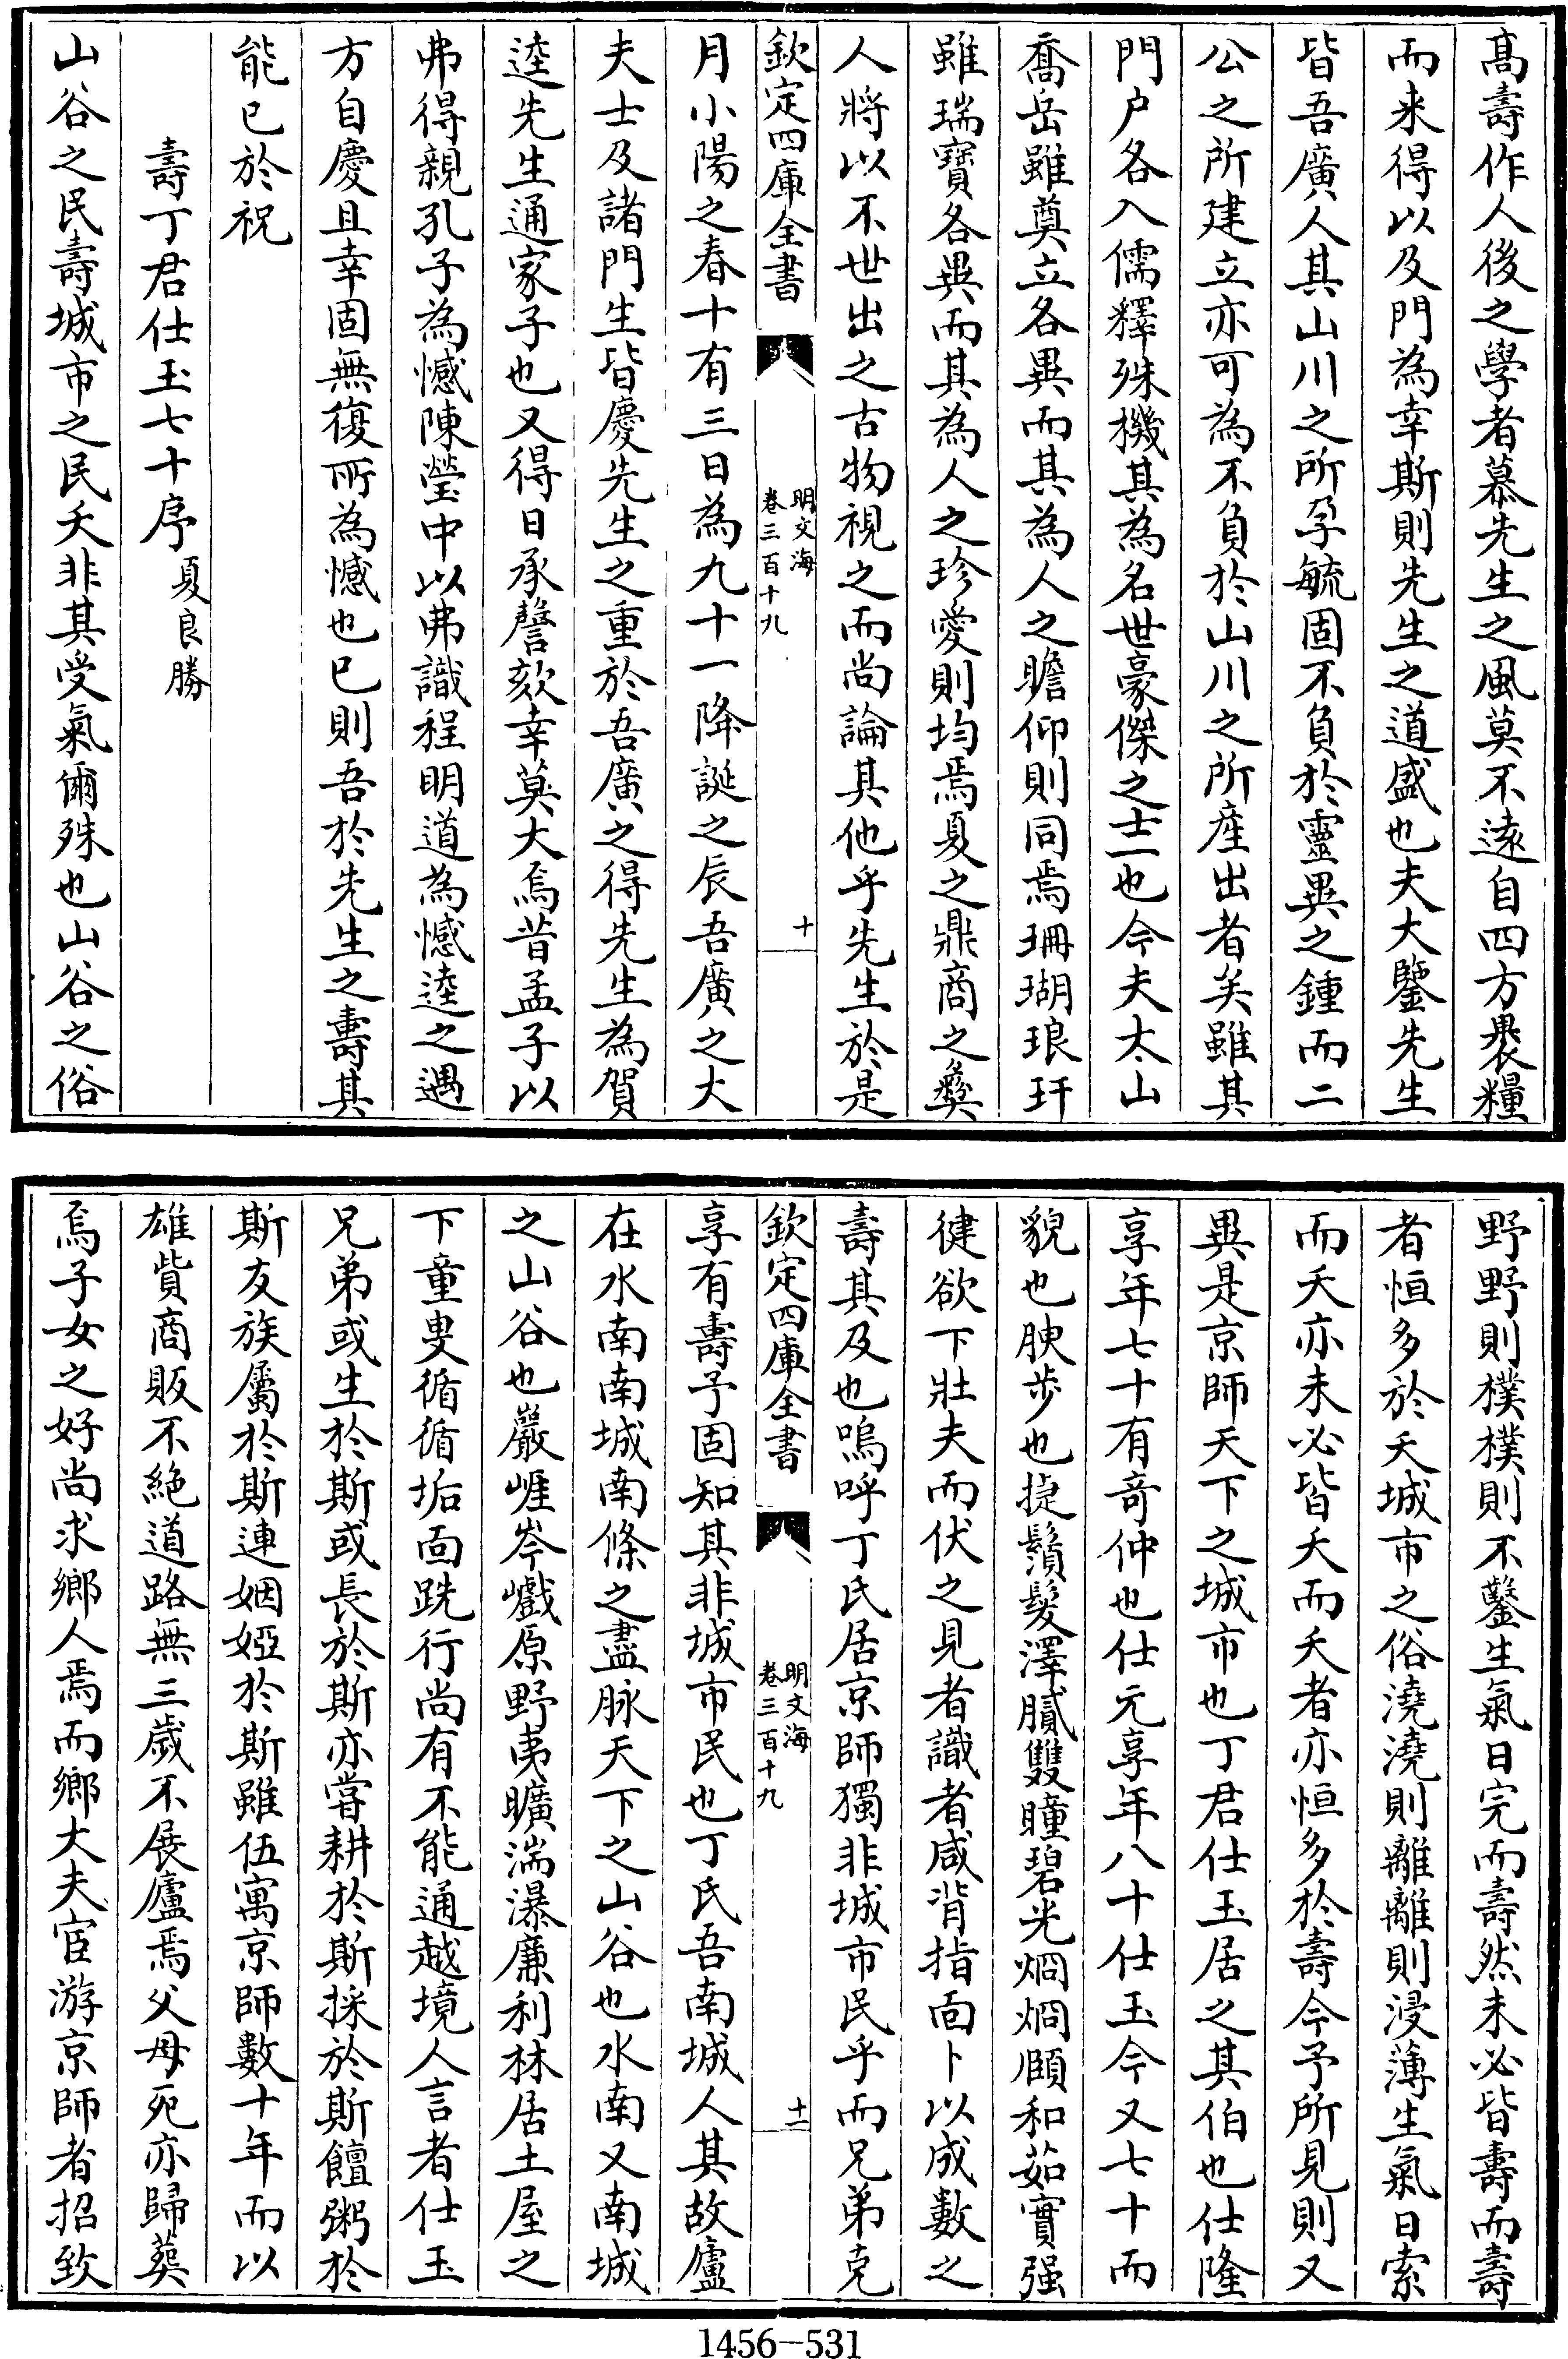 髙壽作人後之學者慕先生之風莫不逺自四方褁糧
而来得以及門為幸斯則先生之道盛也夫大鑒先生
皆吾廣人其山川之所孕毓固不負於靈異之鍾而二
公之所建立亦可為不負於山川之所產出者矣雖其
門户各入儒釋殊機其為名世豪傑之士一也今夫太山
喬岳雖奠立各異而其為人之瞻仰則同焉珊瑚琅玕
雖瑞寶各異而其為人之珍愛則均焉夏之鼎商之彝
人將以不世出之古物視之而尚論其他乎先生於是
欽定四庫全書
明文海
卷三百十九
十
月小陽之春十有三日為九十一降誕之辰吾廣之大
夫士及諸門生皆慶先生之重於吾廣之得先生為賀
逵先生通家子也又得日承謦欬幸莫大焉昔孟子以
弗得親孔子為憾陳瑩中以弗識程明道為憾逵之遇
方自慶且幸固無復所為憾也已則吾於先生之壽其
能已於祝
壽丁君仕玉七十序 夏良勝
山谷之民壽城市之民夭非其受氣爾殊也山谷之俗
野野則樸樸則不鑿生氣日完而壽然未必皆壽而壽
者恒多於夭城市之俗澆澆則離離則浸薄生氣日索
而夭亦未必皆夭而夭者亦恒多於壽今予所見則又
異是京師天下之城市也丁君仕玉居之其伯也仕隆
享年七十有竒仲也仕元享年八十仕玉今又七十而
貌也腴步也捷鬚髮澤膩雙瞳碧光烱烱頤和茹實强
健欲下壯夫而伏之見者識者咸背指面卜以成數之
壽其及也嗚呼丁氏居京師獨非城市民乎而兄弟克
欽定四庫全書
明文海
卷三百十九
十一
享有壽予固知其非城市民也丁氏吾南城人其故廬
在水南南城南條之盡脉天下之山谷也水南又南城
之山谷也巖崕岑巇原野夷曠湍瀑廉利林居土屋之
下童叟循循垢面跣行尚有不能通越境人言者仕玉
兄弟或生於斯或長於斯亦嘗耕於斯採於斯饘粥於
斯友族屬於斯連姻婭於斯雖伍寓京師數十年而以
雄貲商販不絶道路無三歲不展廬焉父母死亦歸葬
焉子女之好尚求鄉人焉而鄉大夫宦游京師者招致
1456-531